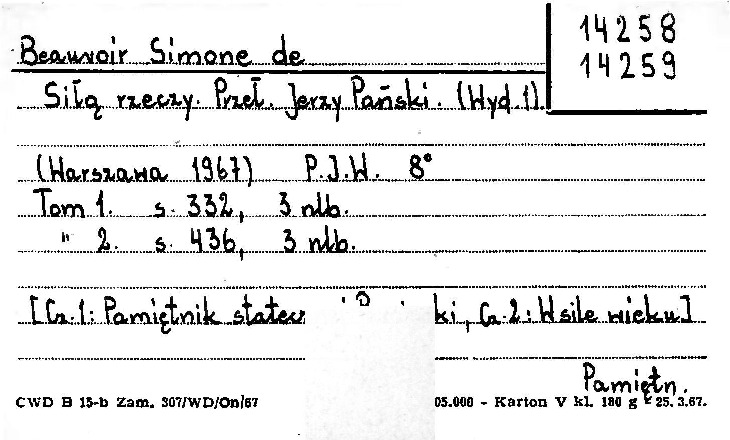 14258
14259
Beauvoir Simone de
Siłą rzeczy. Przeł. Jerzy Pański. (Wyd 1).
(Warszawa 1967) P.I.W. 8°
Tom 1. s. 332, 3 nlb.
" 2. s. 436, 3 nlb.
[Cz.1: Pamiętnik ki, Cz.2: W sile wieku]
Pamiętn.
CWD B 15-b Zam. 307/WD/On/67 05.000 - Karton V kl. 180 g - 25.3.67.